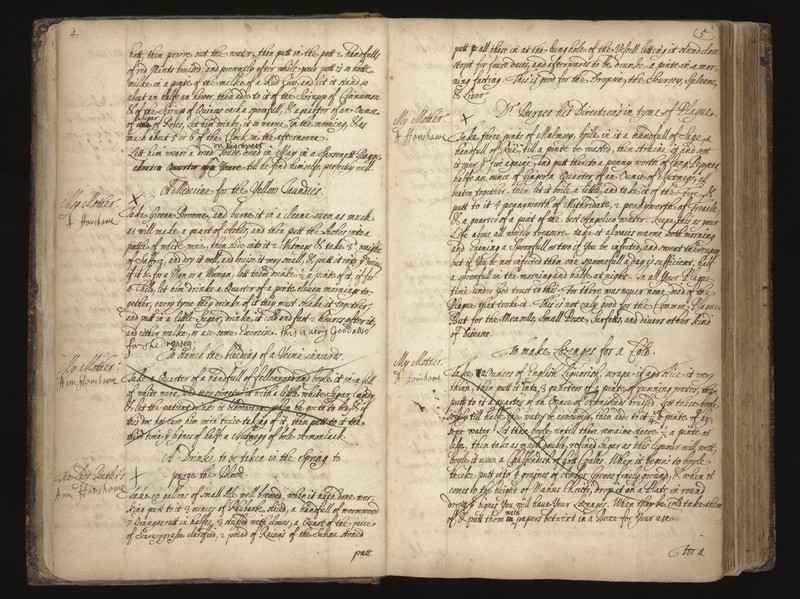 4
hott, then powre out the water, then putt in the pott 2 handfulls
of red Mints bruised, and presently after while your pott is so hott
milke in a pinte of the milke of a Red Cow, and let it stand so
about an halfe an houre, then adde to it of the Sirrupp of Cinnamon
& of the Sirrup of Quinces each a spoonfull, & a quarter of an Ounce
of of Roses, Let him drinke, it so warme, in the morning, & as
much about 5 or 6 of the Clock in the afternoone
Lett him weare a dried Toade in May in a Sarsenett Bagge
till he find himselfe perfectly well
A Medicine for the Yellow Jaundies.
My Mother
A Howhame
Take Greene Broome, and burne it in a cleane oven as much
as will make a quart of Ashes, and then putt the Ashes into a
pottle of white wine, then slice into it 2 Nutmegs & take 3d weight
of Saffron, and dry it well, and bruise it very small, & putt it into ye wine
if it be for a Man or a Woman, let them drinke ½ a pinte of it, if for
a Child, let him drinke a Quarter of a pinte eleven mornings to-
gether, every tyme they drinke of it they must shake it together,
and putt in a little Sugar, drinke it cold and fast 2 houres after it,
and either walke, or use some Exercise. this is very Good allso
for the dropsey
To stench the bleeding of a Veine inwards.
My Mother:
Ann Howhame
Take a Quarter of a handfull of and boyle it in a
of white wine, with a little white Sugar Candy
& let the patient drinke it & if
this doe not cure him with twice taking of it, then putt to it the
third time of halfe a Nutmegg of bole Armoniack.
A Drinke to be taken in the Spring to
purge the Blood
The Lady
Ann Howhame
Take 10 gallons of small Ale well brewed, when it hath done wor-
king putt to it 3 ounces of Rhubarb sliced, a handfull of wormwood
7 Oranges cutt in halfes, & stuffed with cloves, a Quart of the juice
of Scurvygrasse clarified, 2 pound of Raisins of the Sunne stoned
putt
5
putt all these in at the bunghole of the Vessell letting it stand close
stopt for seven dayes, and afterwards to be drunke, a pinte in a mor-
ning fasting. This is good for the Dropsie, the Scurvey, Spleene,
& Liver
Dr Burges his Directions in tyme of Plague.
My Mother:
A Howhame
Take three pints of Malmsey, boile in it a handfull of Sage, a
handfull of Rue, till a pinte be wasted, then straine it and sett
it over ye fire againe, and putt thereto a penny worth of Long Pepper
halfe an ounce of Ginger a Quarter of an Ounce of Nutmegs, all
beaten together, then let it boile a little, and take it of the fire &
putt to it 4 pennyworth of Mithridate, 2 pennyworth of Treacle,
& a quarter of a pint of the best Angelica water. keepe this as your
Life above all wordly treasure. take it alwayes warme both morning
and evening a Spoonfull or two if You be infected, and sweat thereupon
but if You be not infected then one spoonefull a day is sufficient, halfe
a spoonfull in the morning and halfe at night. In all Your Plague
time under God trust to this. for there was never none dead of the
Plague that tooke it. This is not only good for the Common Plague
but for the Measells, Small Poxe, Surfetts, and divers other kind
of Diseases.
To make Lozenges for a Cold.
My Mother:
A Howhame
Take 2 ounces of English Liquorish, scrape it and slice it very
thin, then putt it into 3 quarters of a pinte of running water, then
putt to it a quarter of an Ounce of Anniseeds bruised. Lett these boyle
softly till halfe the water be consumed, then adde to it ½ a pinte of hy-
sope water: Let these boyle untill there remaine neere ½ a pinte of
, then take as much double refined Sugar as this liquour will wett,
boyle it over a Chaffendish of Coales. When it begins to boyle
thicke putt into it graines of Amber Greece finely ground, & when it
comes to the height of Manus Christi, drop it on a Plate in round
dropps & you will have Your Lozenges. When they be cold take them
of & putt them in papers betwixt in a Boxe for Your use.
with
for a